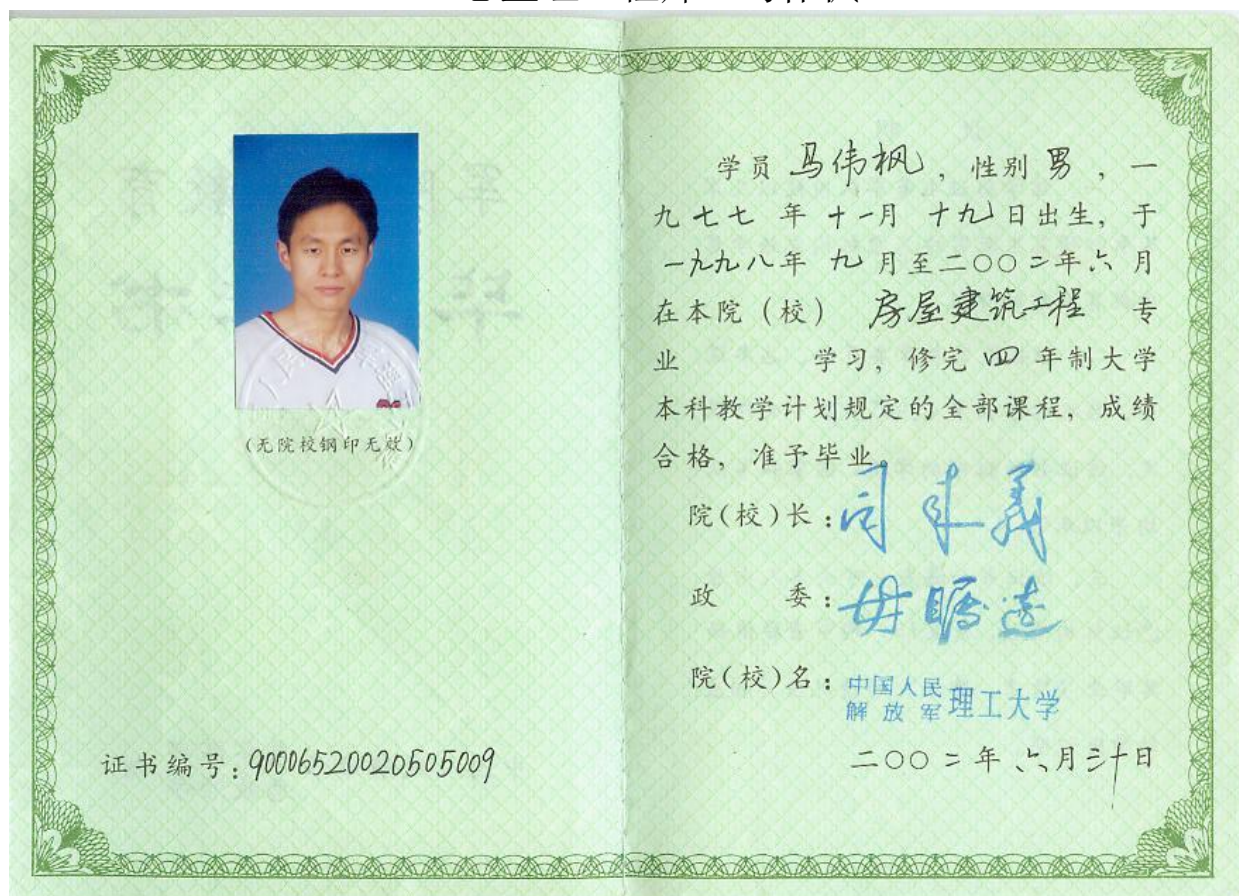 (无院校钢印无效)
证书编号:90006520020505009
学员 马伟枫,性别 男,一
九七七 年 十一月 十九 日出生,于
一九九八年 九 月至二〇〇二年六 月
在本院(校) 房屋建筑工程 专
业 学习,修完 四 年制大学
本科教学计划规定的全部课程,成绩
合格,准予毕业。
院(校)长:司来义
政 委:毋瞩远
院(校)名:中国人民解放军理工大学
二〇〇二年 六月三十日